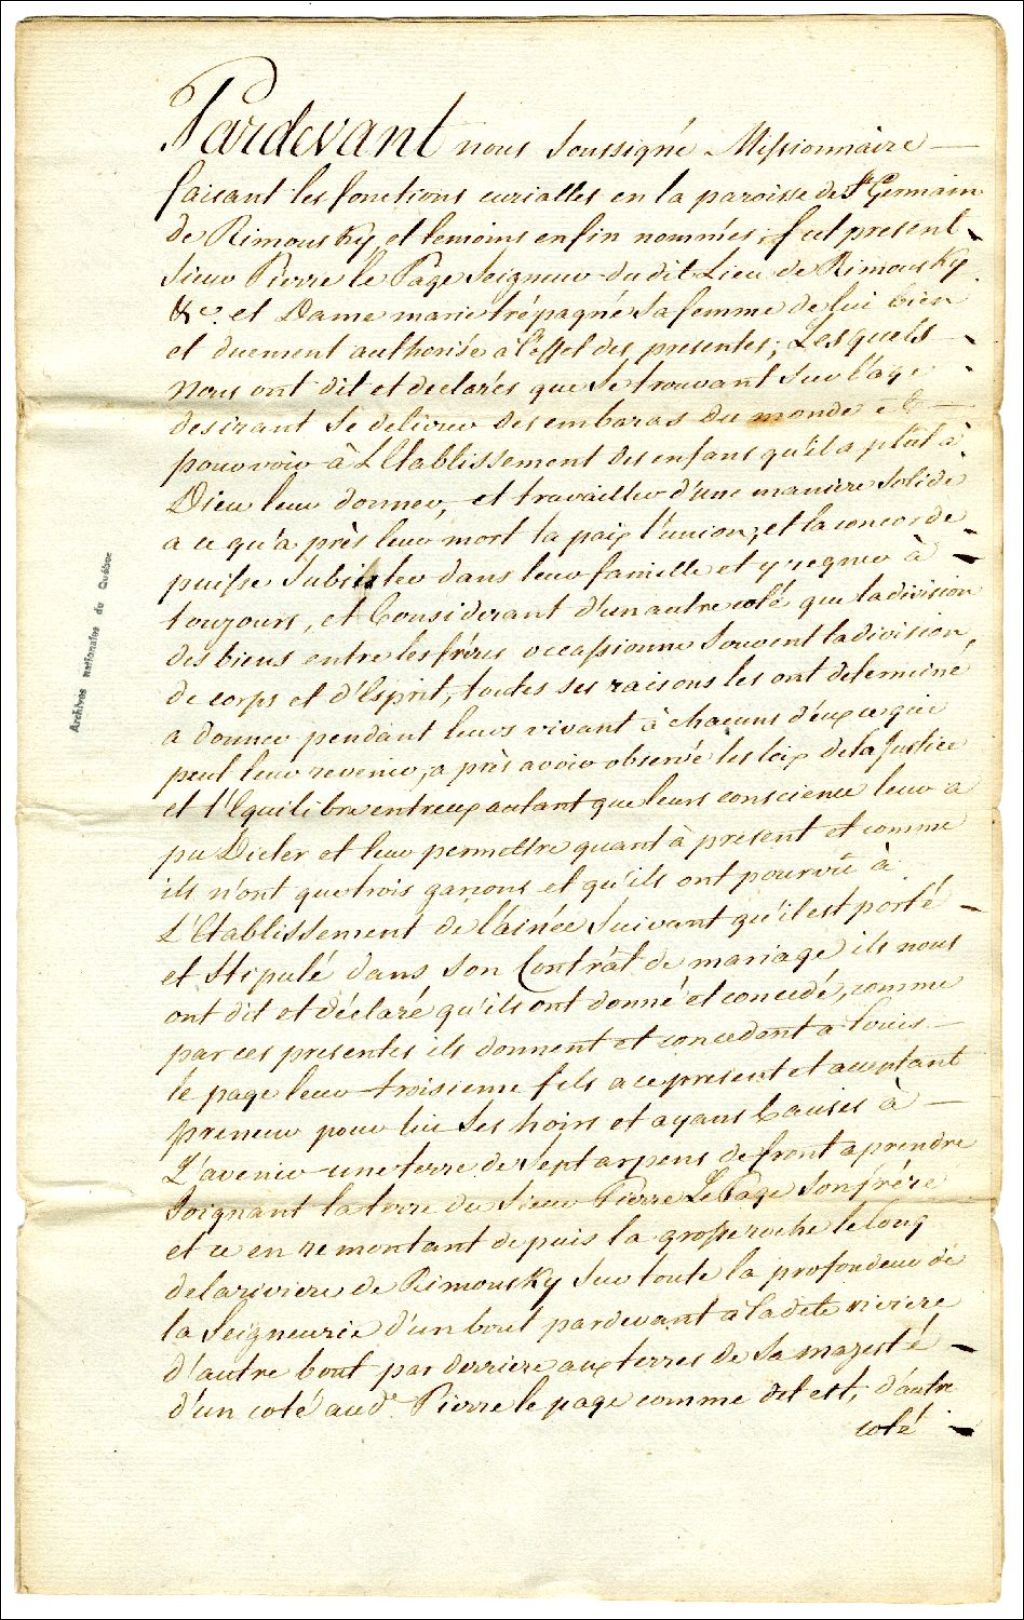 Pardevant nous Soussigné Missionnaire
faisant les fonctions curialles en la paroisse de St Germain
de Rimousky, et temoins enfin nommés; fut present
Sieur Pierre le Page Seigneur dudit Lieu de Rimousky
&c. et Dame marie trépagné Sa femme de lui bien
et duement authorisée à l'effet des presentes; Lesquels
Nous ont dit et declarés que Se trouvant Sur l'age
desirant Se delivrer des embaras du monde et
pourvoir à L'Etablissement des enfans qu'il a plût à
Dieu leur donner, et travailler d'une maniere Solide
a ce qu'a près leur mort la paix l'union, et la concorde
puisse Subsister dans leur famille et y regner à
toujours, et Considerant d'un autre coté que la division
des biens entre les fréres occassionne Souvent la division,
de corps et d'Esprit, toutes ses raisons les ont determiné
a donner pendant leurs vivant à chacuns d'eux ce qui
peut leur revenir, a près avoir observé les loix de la Justice
et l'Equilibre entreux autant que leurs conscience leur a
pu Dicter et leur permettre quant à present et comme
ils n'ont que trois garçons et qu'ils ont pourvû à
L'Etablissement de l'ainée Suivant qu'il est porté
et Stipulé dans Son Contrât de mariage ils nous
ont dit et déclaré qu'ils ont donné et concedé, comme
par ces presentes ils donnent et concedent a Louis
le page leur troisieme fils a ce present et acceptant
preneur pour lui Ses hoirs et ayans Causes à
L'avenir une terre de Sept arpens de front a prendre
Joignant la terre du Sieur Pierre LePage Son frére
et ce en remontant depuis la grosse roche le long
de la riviere de Rimousky Sur toute la profondeur de
la Seigneurie d'un bout pardevant à la dete riviere
d'autre bout par derriere aux terres de Sa majesté
d'un coté aud.t Pierre le page comme dit est, d'autre
coté
Archives nationales du Québec